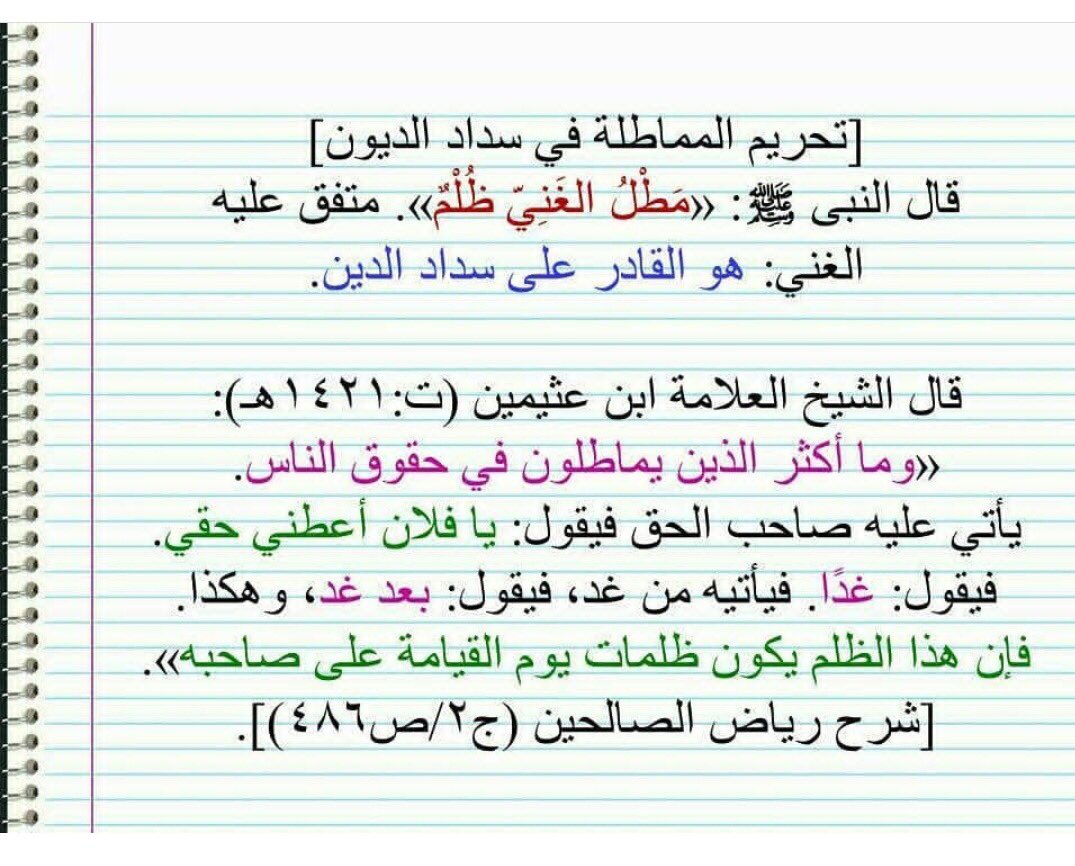 [تحريم المماطلة في سداد الديون]
قال النبى ﷺ: «مَطْلُ الغَنِيّ ظُلْمٌ». متفق عليه
الغني: هو القادر على سداد الدين.
قال الشيخ العلامة ابن عثيمين (ت:١٤٢١هـ):
«وما أكثر الذين يماطلون في حقوق الناس.
يأتي عليه صاحب الحق فيقول: يا فلان أعطني حقي.
فيقول: غدًا. فيأتيه من غد، فيقول: بعد غد، وهكذا.
فإن هذا الظلم يكون ظلمات يوم القيامة على صاحبه».
[شرح رياض الصالحين (ج٢/ص٤٨٦)].